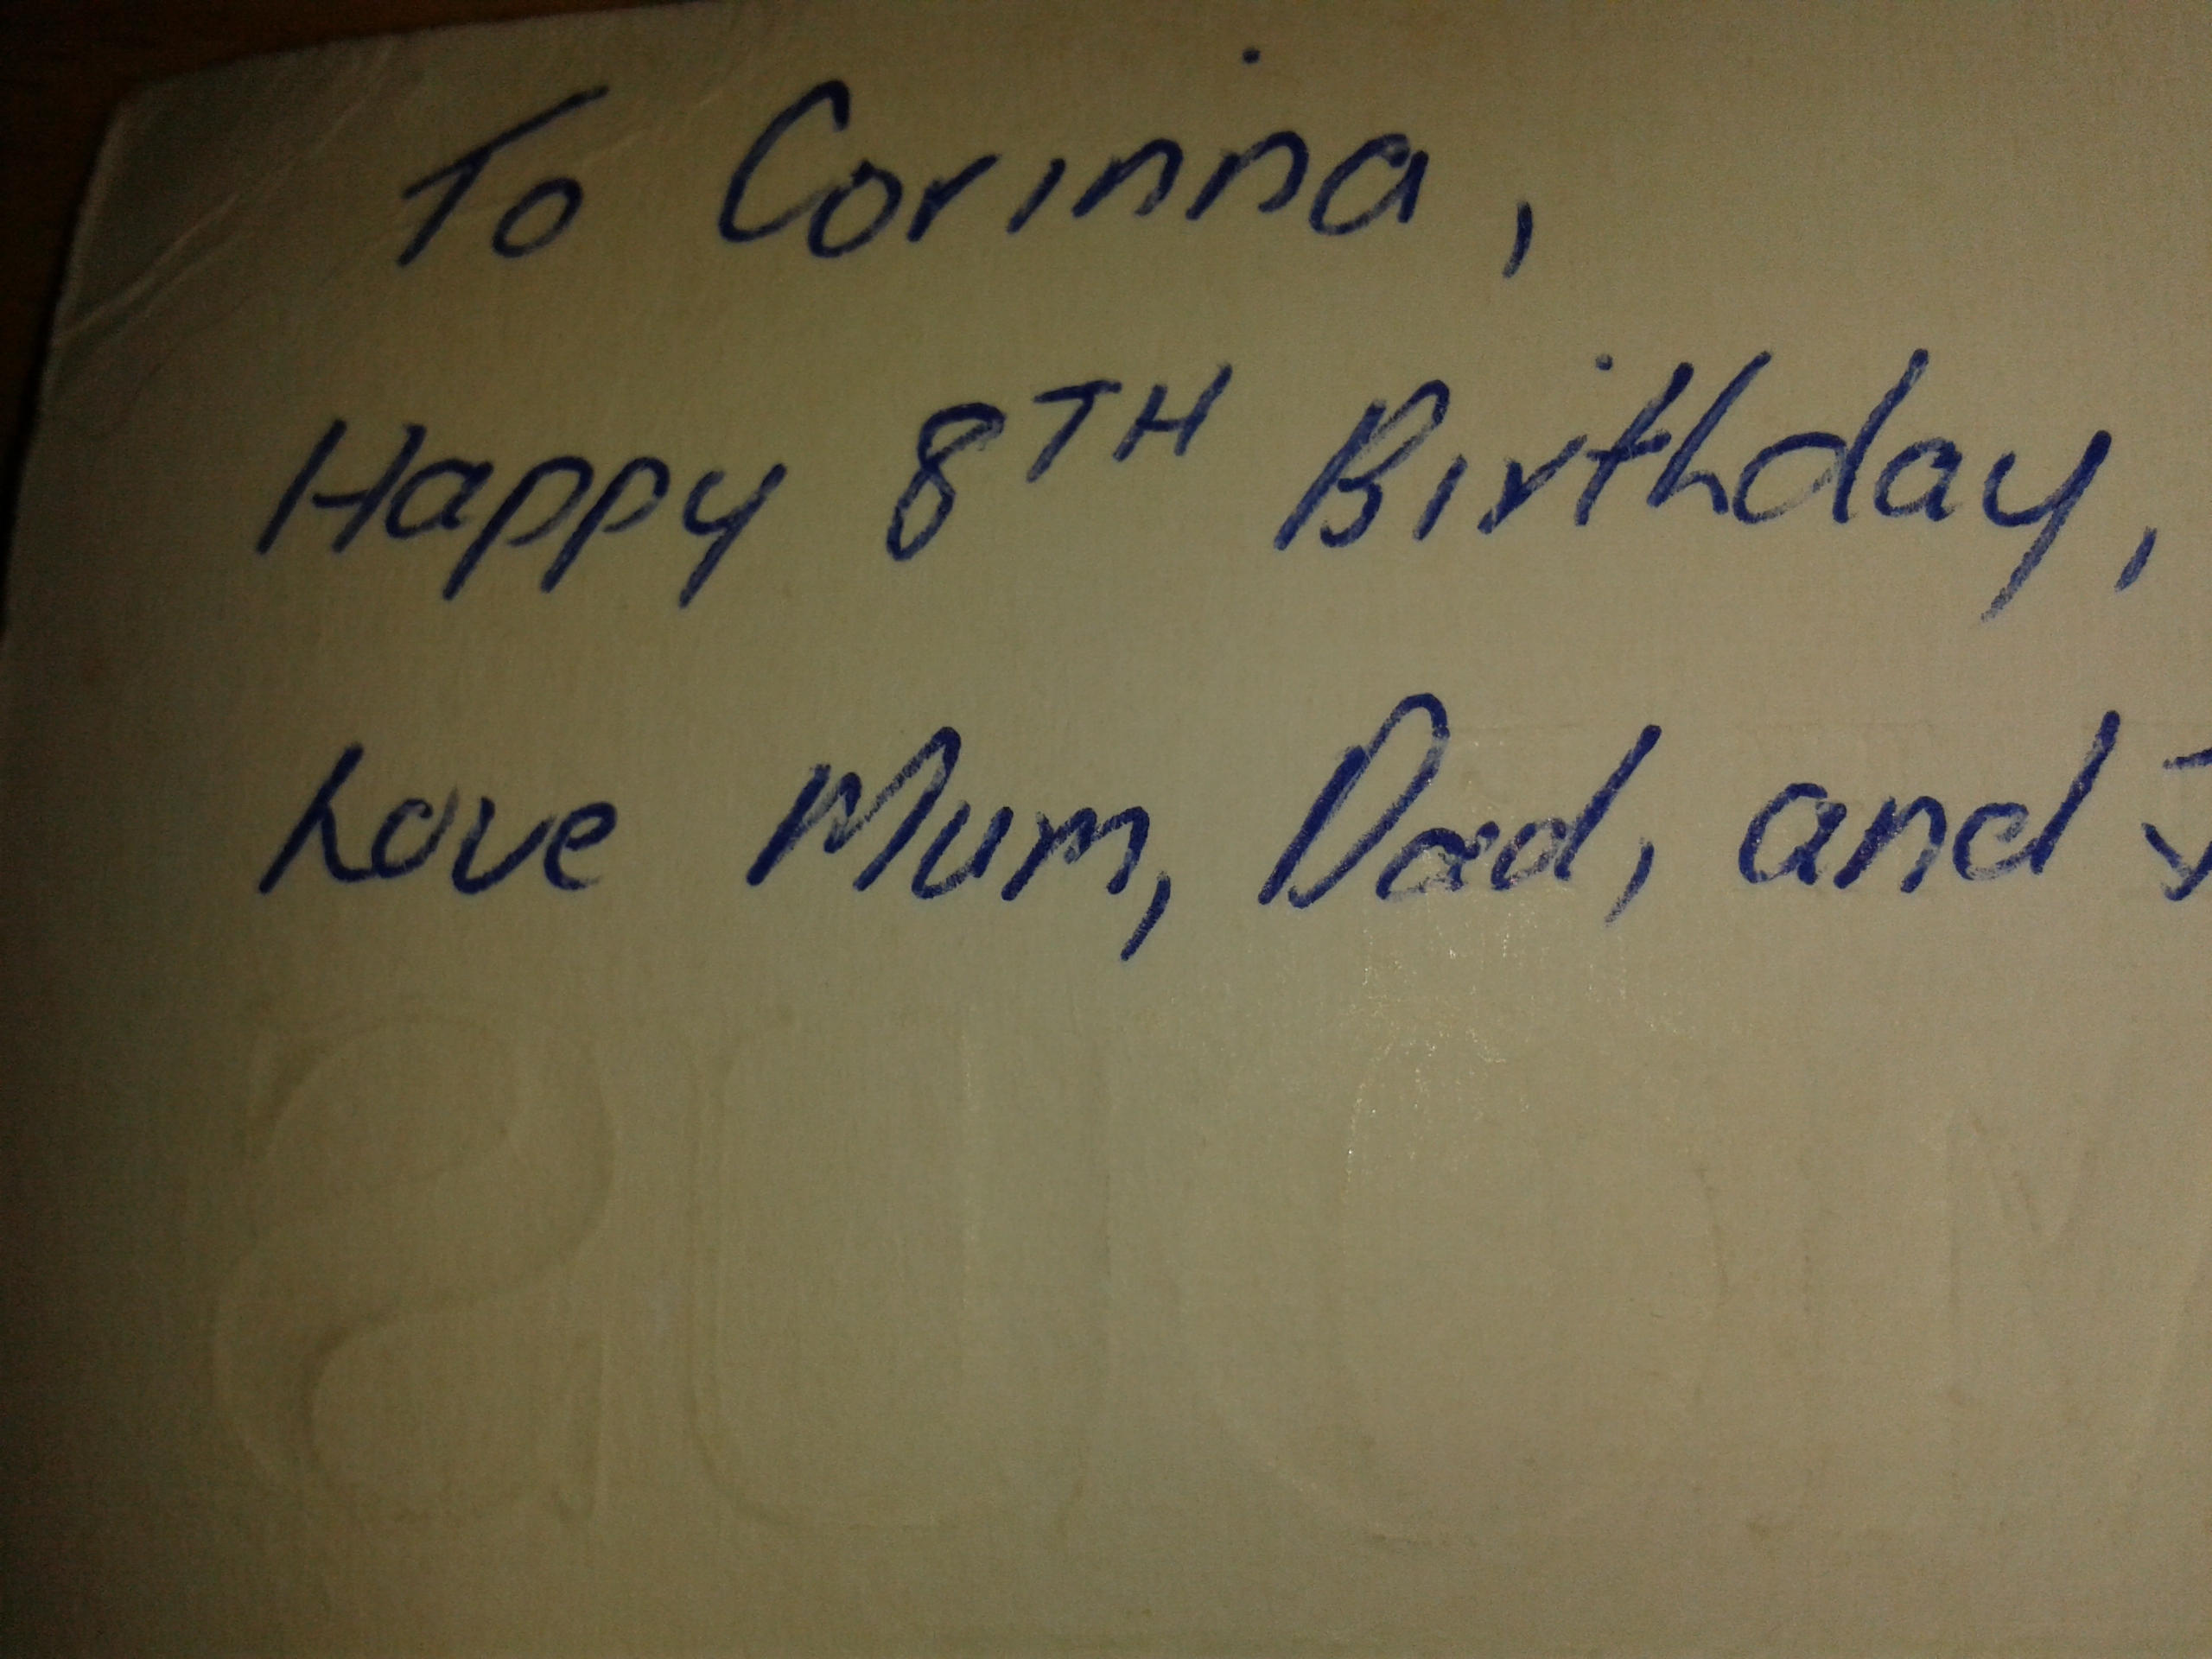 To Corinna,
Happy 8TH Birthday,
Love Mum, Dad, and